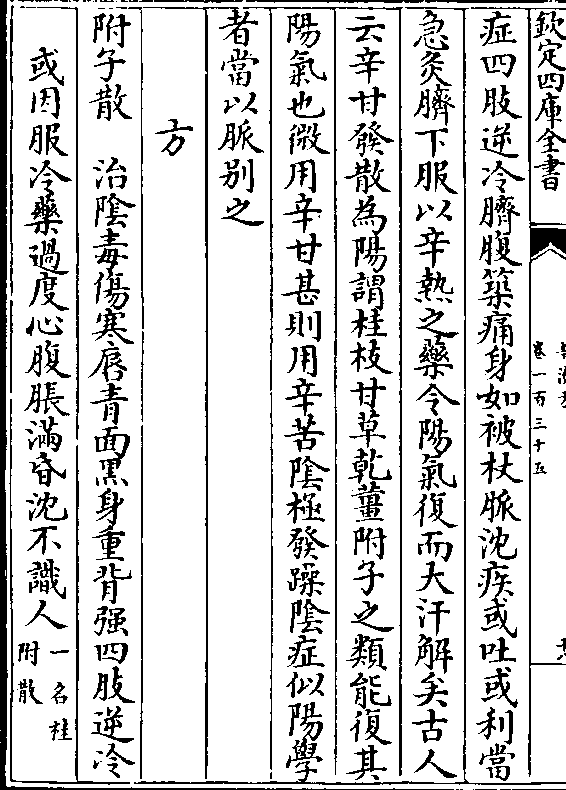 欽定四庫全書
卷一百三十五
症四肢逆冷臍腹築痛身如被杖脈沈疾或吐或利當
急灸臍下服以辛熱之藥令陽氣復而大汗解矣古人
云辛甘發散為陽謂桂枝甘草乾薑附子之類能復其
陽氣也微用辛甘甚則用辛苦陰極發躁陰症似陽學
者當以脈别之
方
附子散　治陰毒傷寒唇青面黑身重背强四肢逆冷
或因服冷藥過度心腹脹滿昏沈不識人一名桂附散